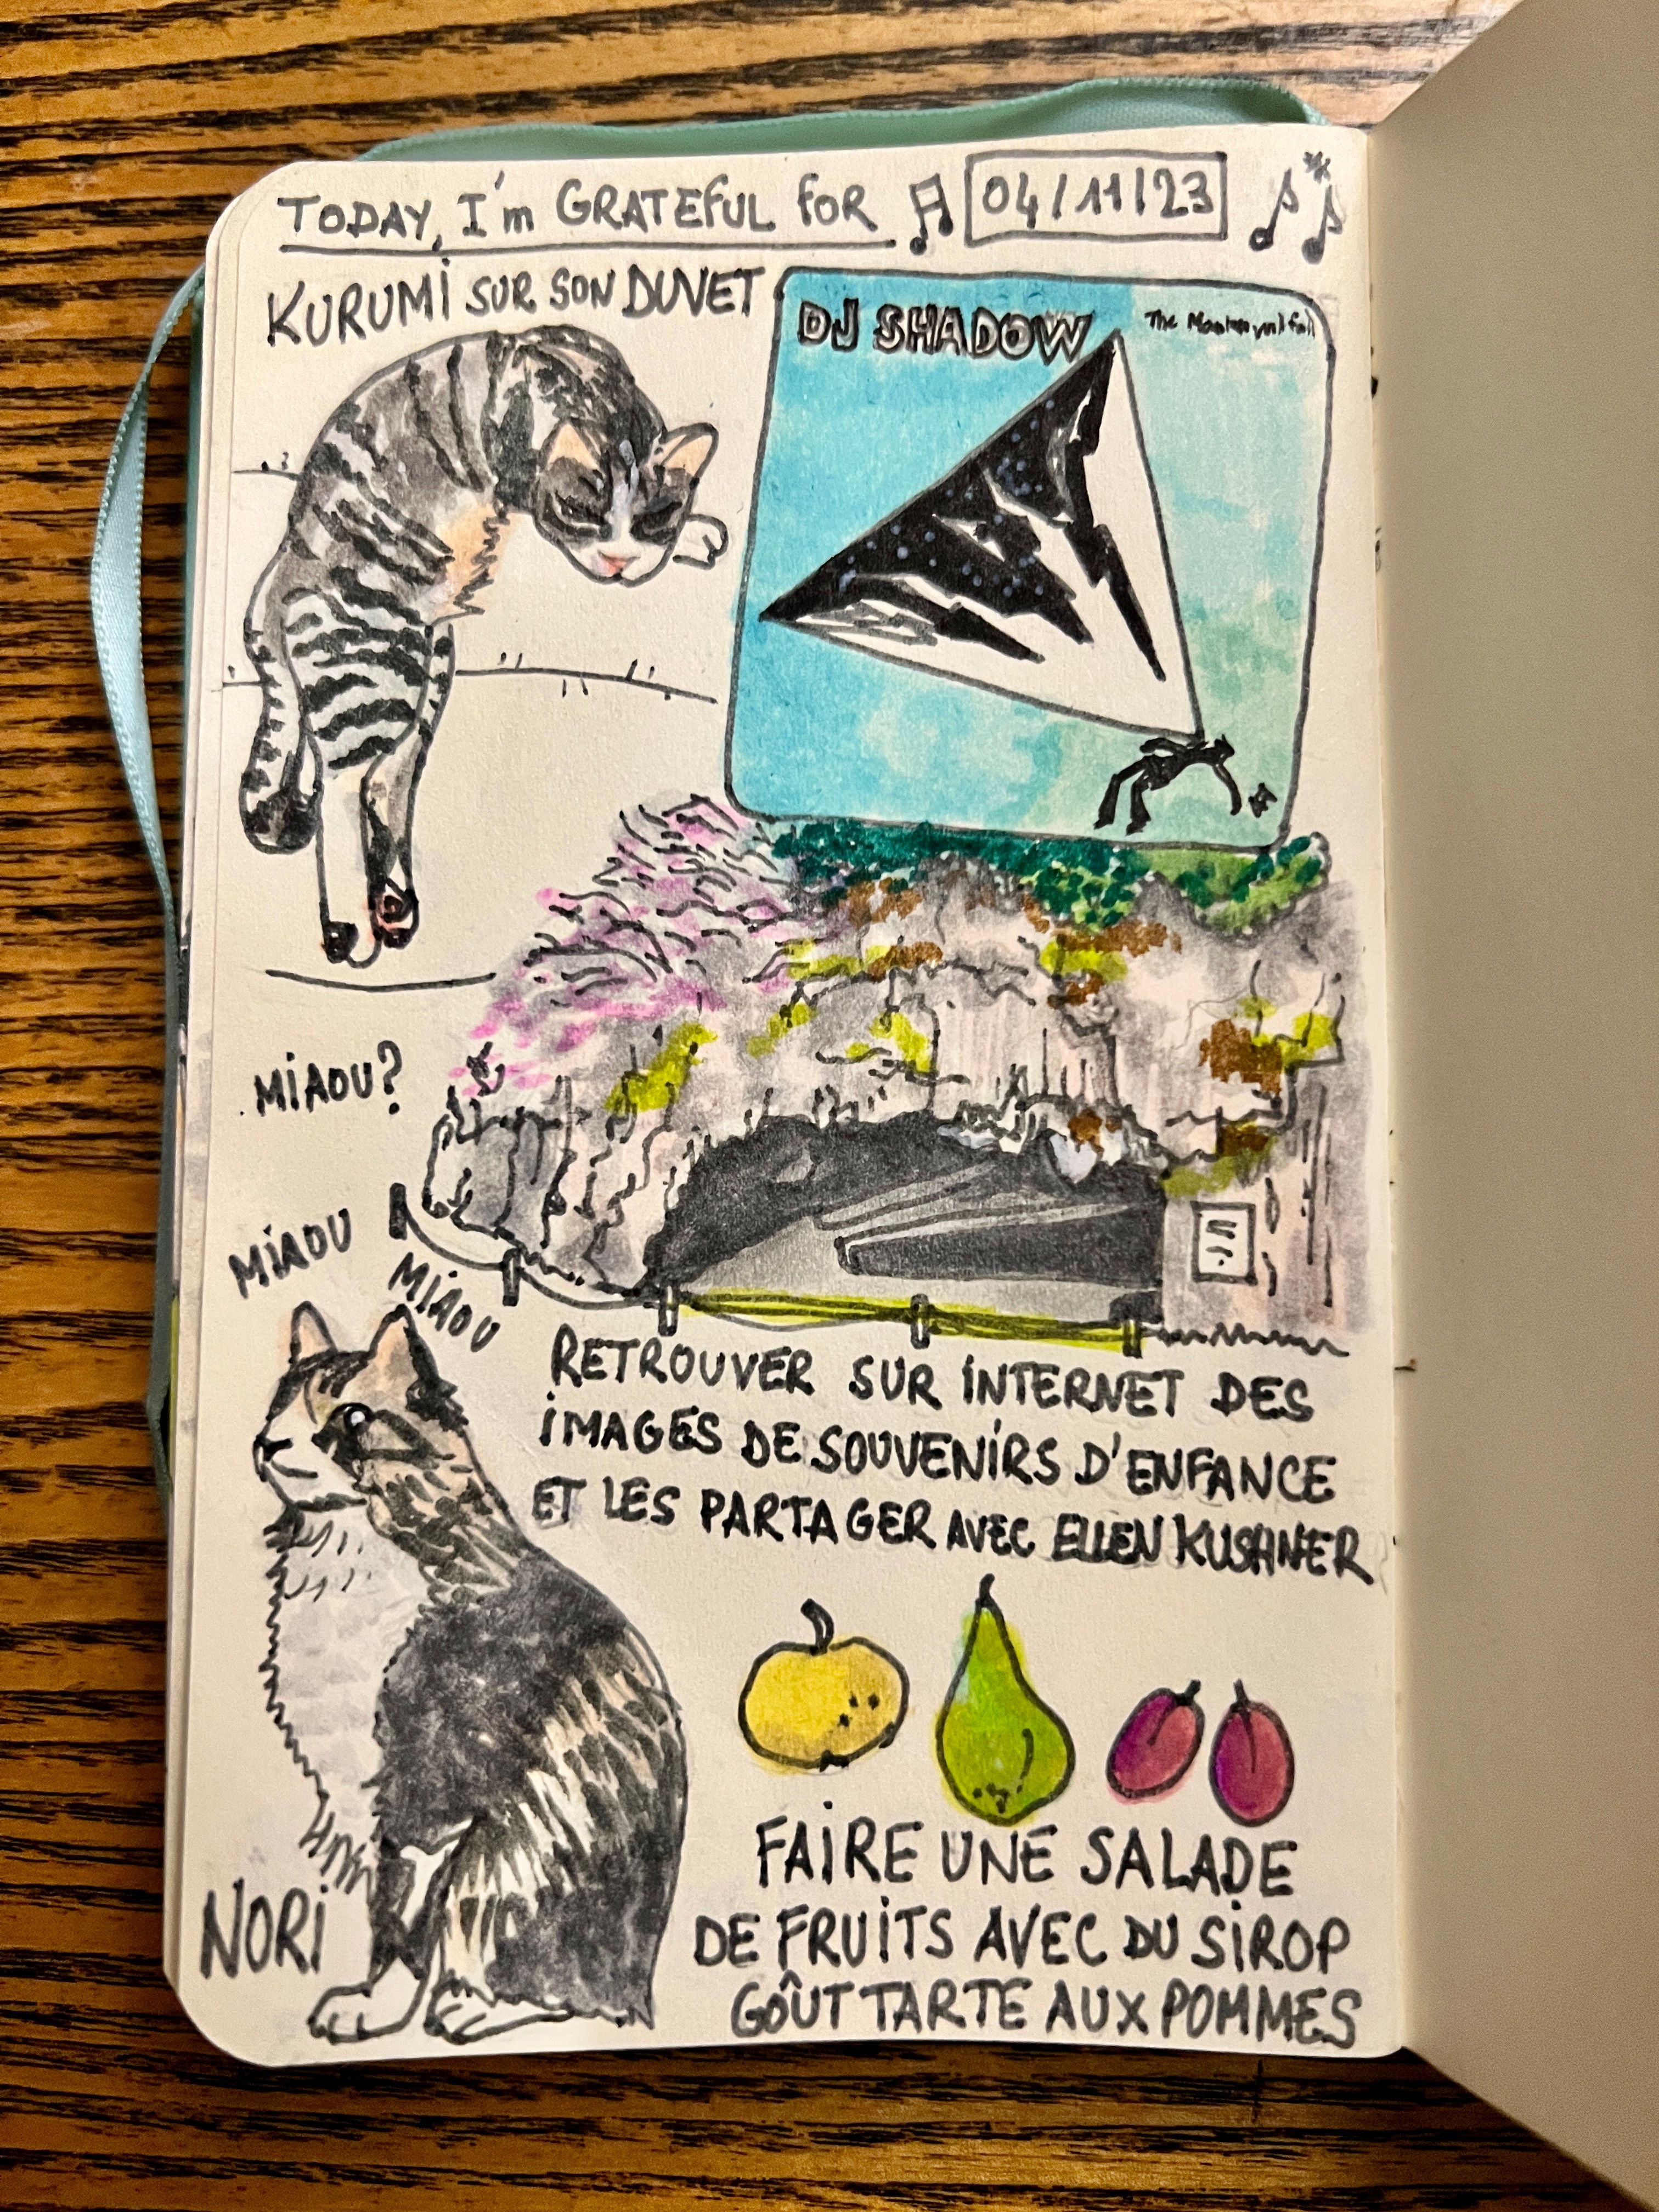 TODAY, I'm GRATEFUL FOR
04/11/23
KURUMI SUR SON DUVET
DJ SHADOW
The
MIAOU?
MIAOU
MIAOU
RETROUVER SUR INTERNET DES
IMAGES DE SOUVENIRS D'ENFANCE
ET LES PARTAGER AVEC ELLEN KUSHNER
NORI
FAIRE UNE SALADE
DE FRUITS AVEC DU SIROP
GOÛT TARTE AUX POMMES